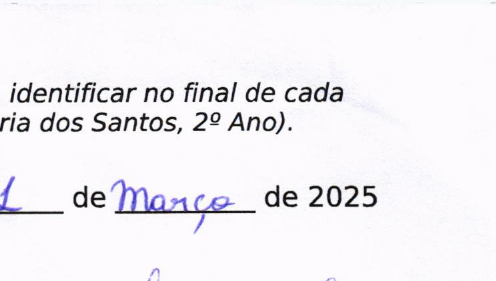 identificar no final de cada
ria dos Santos, 2º Ano).
1 de Março de 2025